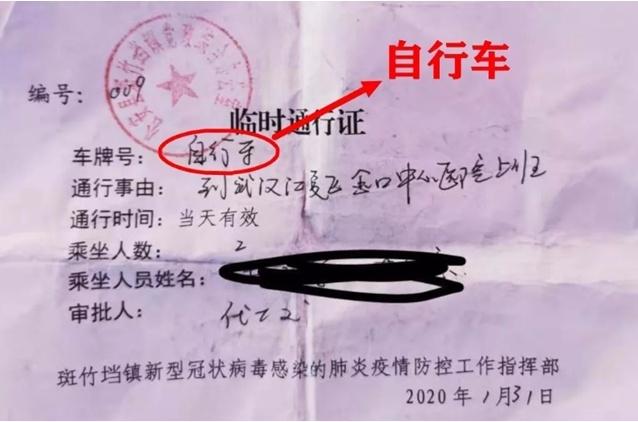 自行车
编号: 009
临时通行证
车牌号: 自行车
通行事由: 到武汉江夏区金口中心医院上班
通行时间: 当天有效
乘坐人数: 2
乘坐人员姓名:
审批人:
斑竹垱镇新型冠状病毒感染的肺炎疫情防控工作指挥部
2020年1月31日